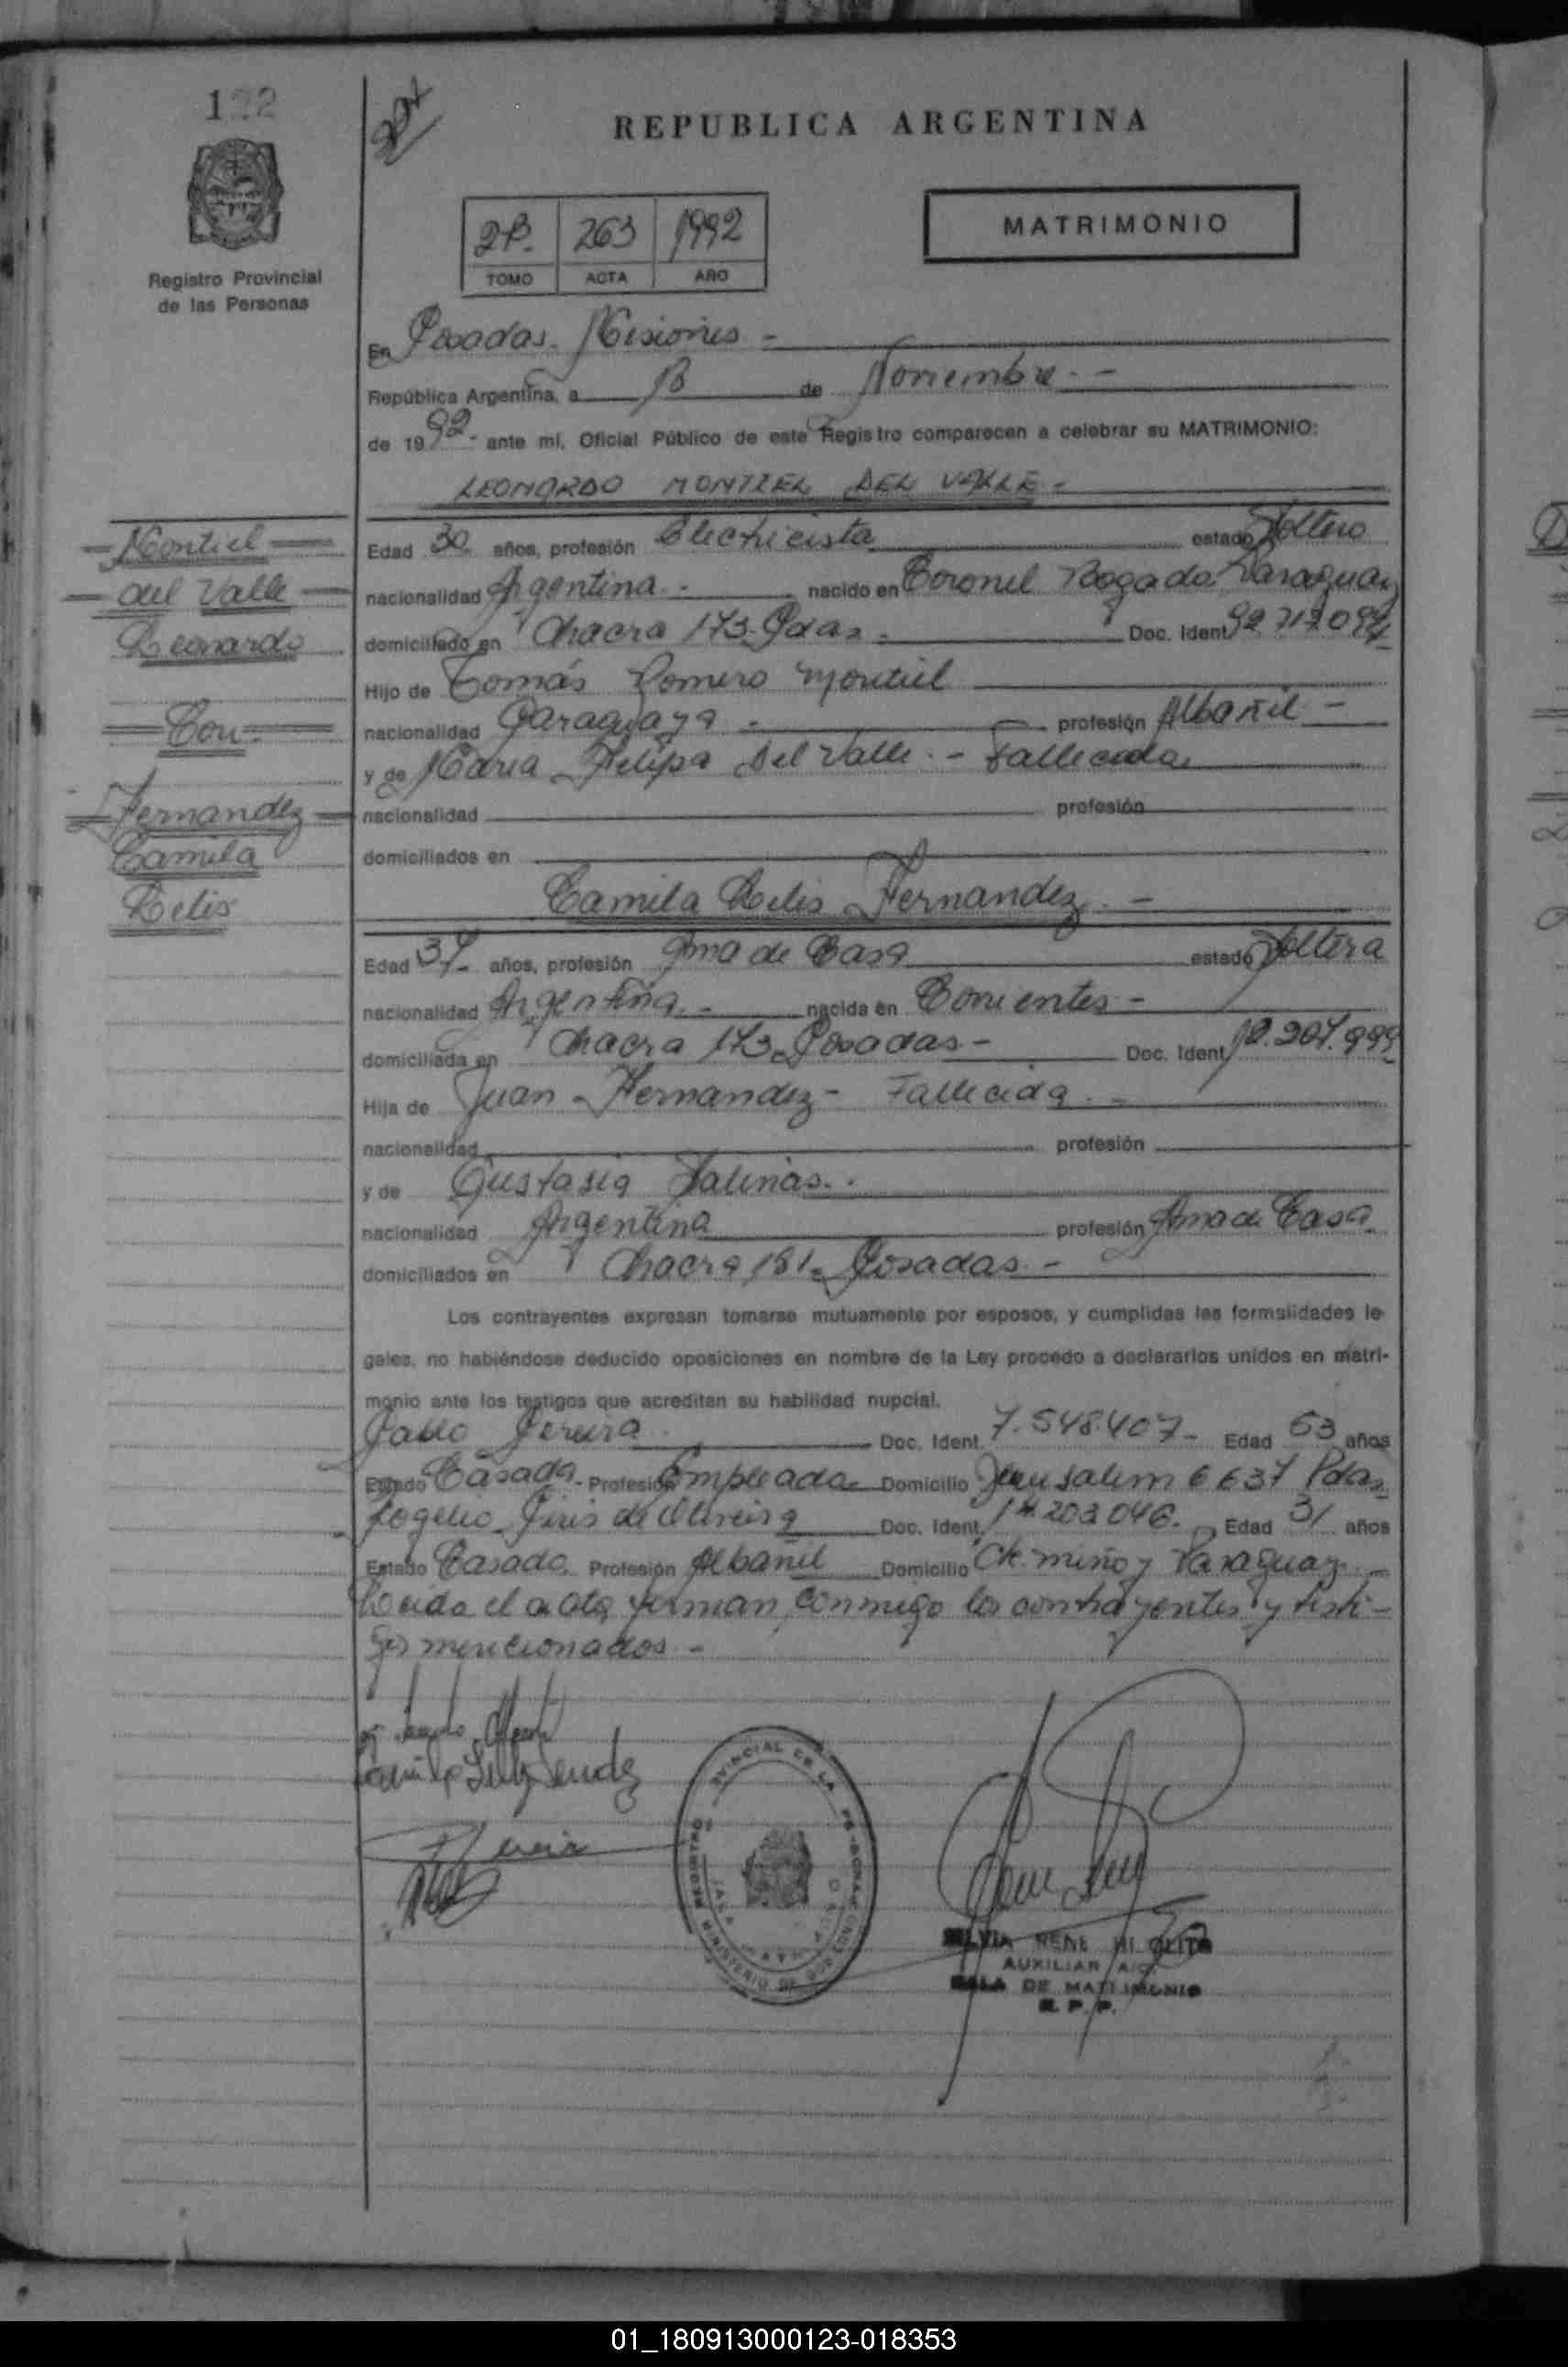 122
REPUBLICA ARGENTINA
2B. 263 1992
TOMO ACTA AÑO
MATRIMONIO
Registro Provincial
de las Personas
En Posadas. Misiones -
República Argentina, a 13 de Noviembre -
de 1992- ante mí, Oficial Público de este Registro comparecen a celebrar su MATRIMONIO:
LEONARDO MONTIEL DEL VALLE -
Montiel
del Valle
Leonardo
Con
Fernandez
Camila
Lelis
Edad 30 años, profesión Electricista estado Soltero
nacionalidad Argentina - nacido en Coronel Bogado, Paraguay
domiciliado en Chacra 173-Pdas - Doc. Ident
Hijo de Tomás Romero Montiel
nacionalidad Paraguaya - profesión Albañil -
y de Maria Felipa Del Valle. - Fallecida
nacionalidad profesión
domiciliados en
Camila Lelis Fernandez. -
Edad años, profesión Ama de Casa estado Soltera
nacionalidad Argentina. - nacida en Corrientes -
domiciliada en Chacra 173-Posadas - Doc. Ident
Hija de Juan Fernandez - Fallecida. -
nacionalidad profesión
y de Salinas. -
nacionalidad Argentina profesión Ama de Casa
domiciliados en Chacra 181- Posadas. -
Los contrayentes expresan tomarse mutuamente por esposos, y cumplidas las formalidades le-
gales, no habiéndose deducido oposiciones en nombre de la Ley procedo a declararlos unidos en matri-
monio ante los testigos que acreditan su habilidad nupcial.
Pablo Pereira Doc. Ident. 7.548.407- Edad 53 años
Estado Casado - Profesión Empleado Domicilio Jerusalem 6637 Pdas
Rogelio de Oliveira Doc. Ident. 14.203.046. Edad 31 años
Estado Casado. Profesión Albañil Domicilio miño y Paraguay. -
Leida el acta, firman conmigo los contrayentes y testi-
gos mencionados -
REGISTRO PROVINCIAL DE LAS PERSONAS
MINISTERIO DE
SILVIA RENE
AUXILIAR
SALA DE MATRIMONIO
R. P. P.
01_180913000123-018353